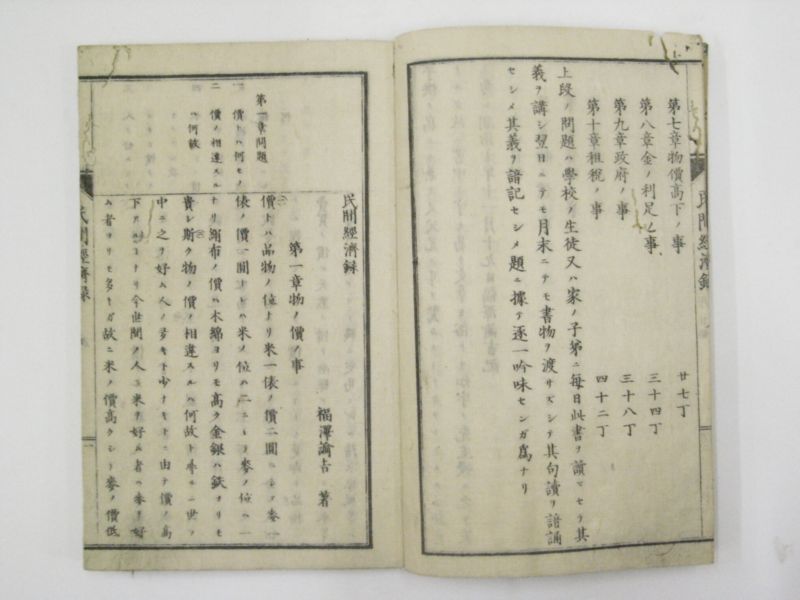 第七章物價高下ノ事 廿七丁
第八章金ノ利足ノ事 三十四丁
第九章政府ノ事 三十八丁
第十章租税ノ事 四十二丁
上段ノ問題ハ學校ノ生徒又ハ家ノ子弟ニ毎日此書ヲ讀マセテ其
義ヲ講シ翌日ニテモ月末ニテモ書物ヲ渡サズシテ其句讀ヲ諳誦
セシメ其義ヲ諳記セシメ題ニ據テ逐一吟味センガ爲ナリ
民間經濟録
民間經濟録
福澤諭吉 著
第一章物ノ價ノ事
第一章問題
一 價トハ何モノ
二 價ノ相違スル
ハ何故
價トハ品物ノ位ナリ米一俵ノ價二圓ニシテ麥一
俵ノ價一圓ナレハ米ノ位ハ二ニシテ麥ノ位ハ一
ナリ絹布ノ價ハ木綿ヨリモ高ク金銀ハ鉄ヨリモ
貴シ斯ク物ノ價ノ相違スルハ何故ト尋ルニ世ノ
中ニ之ヲ好ム人ノ多キト少ナキトニ由テ價ノ高
下アルコトナリ今世間ノ人ニ米ヲ好ム者ハ麥ヲ好
ム者ヨリモ多キガ故ニ米ノ價高クシテ麥ノ價低
民間經濟録